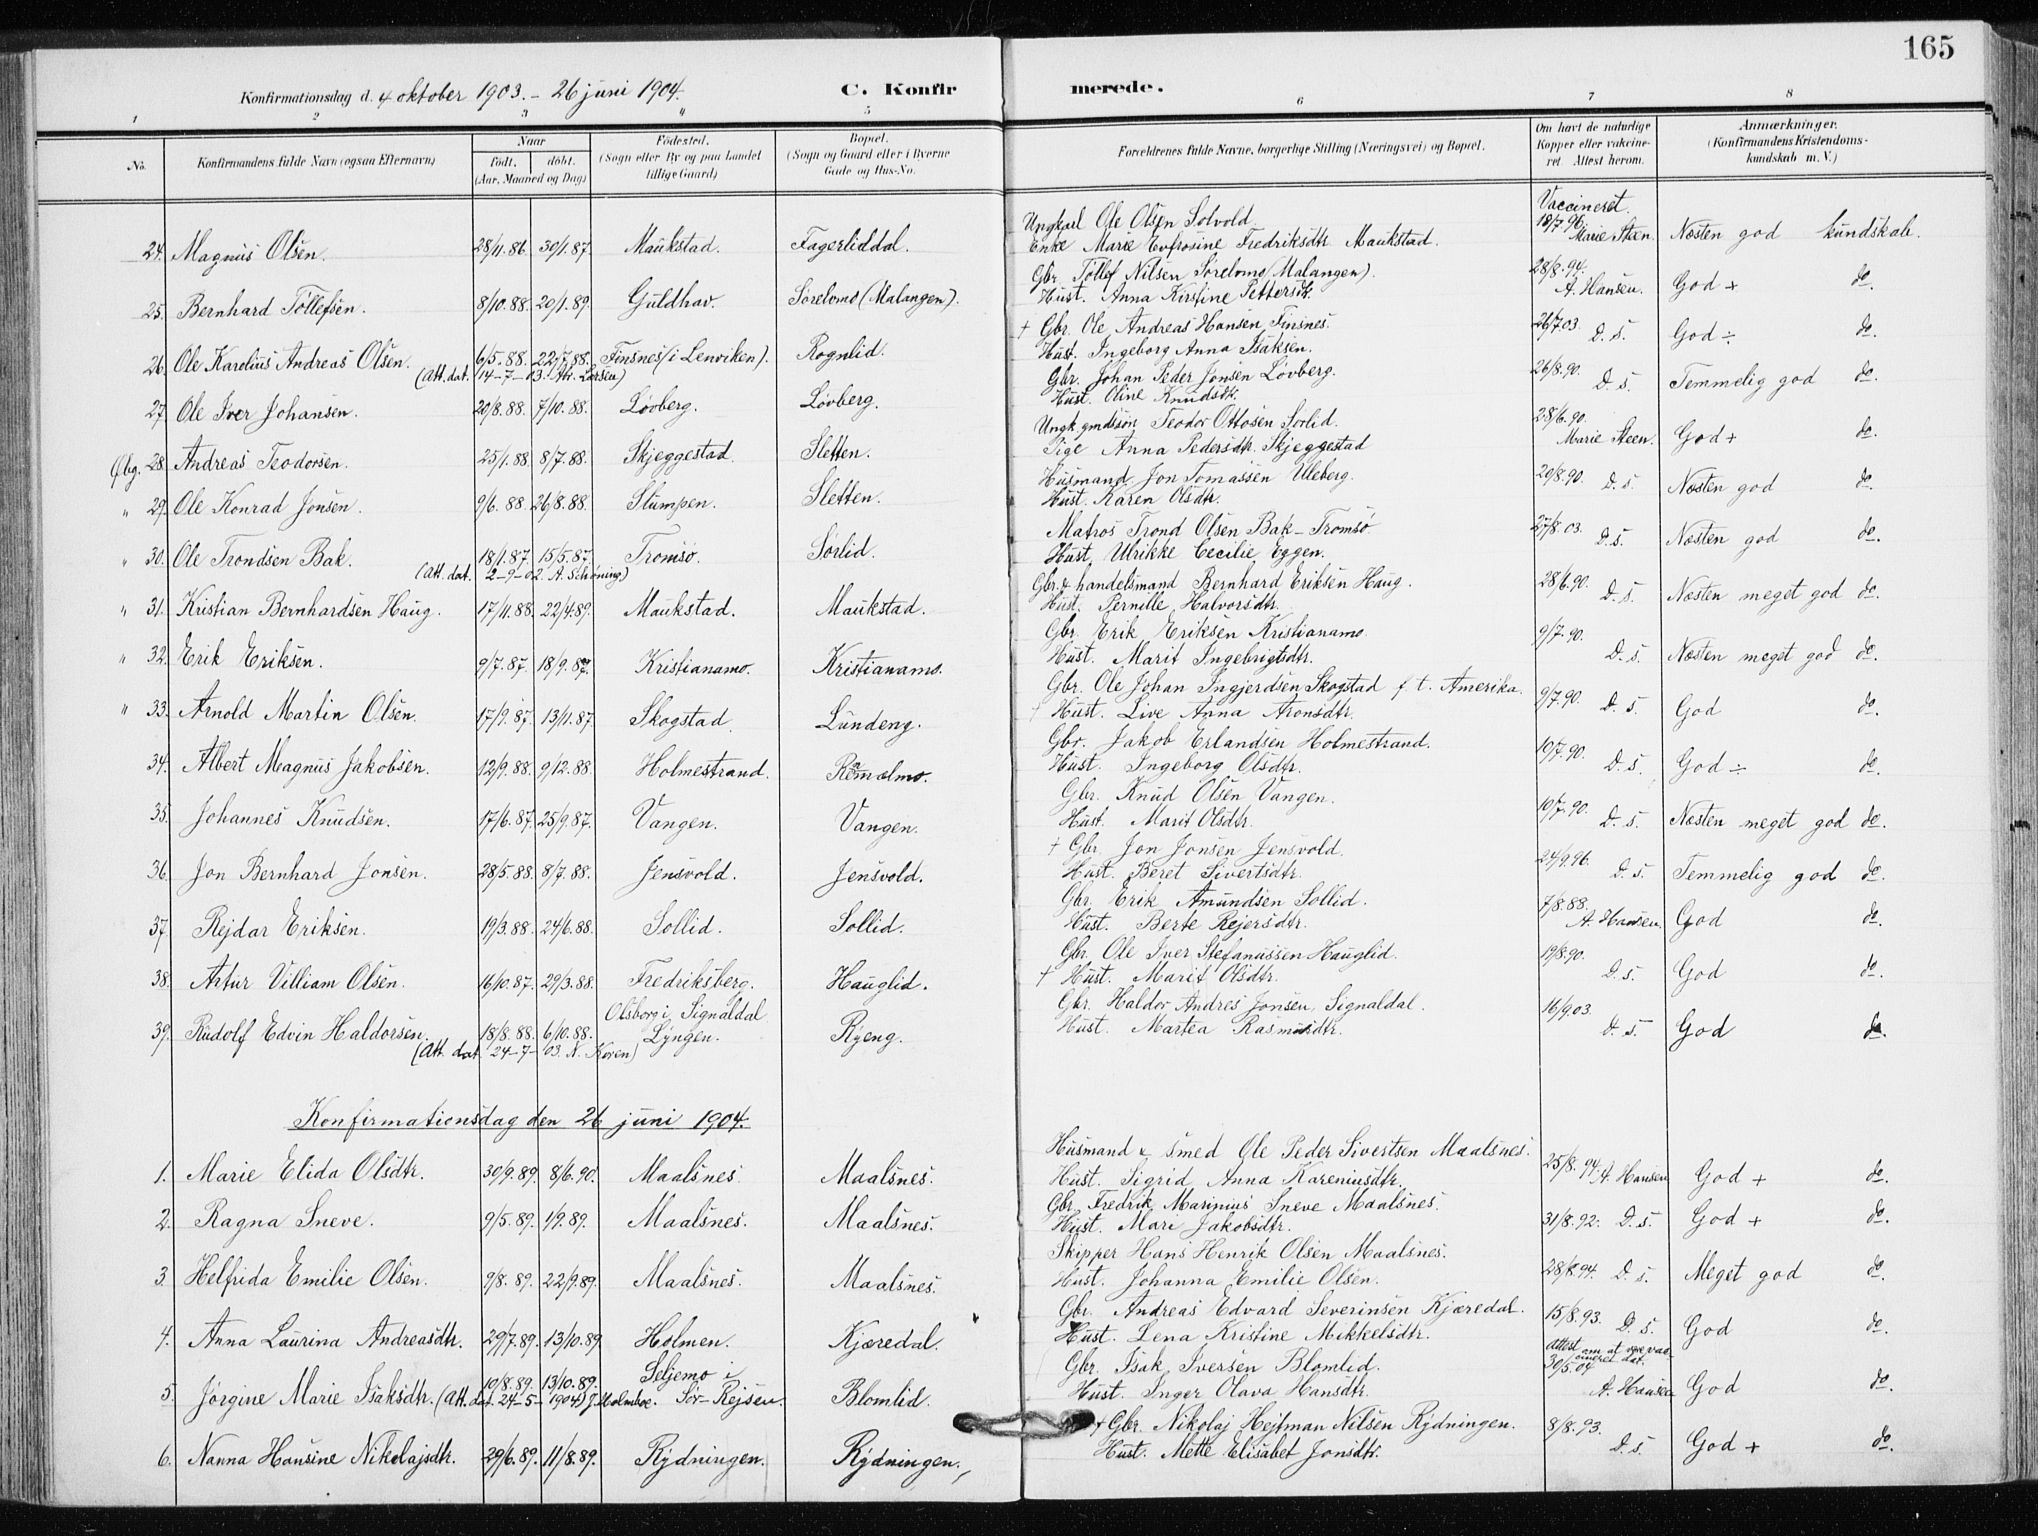 165
Konfirmationsdag d. 4 oktober 1903. – 26 juni 1904.
C. Konfirmerede.
1 2 3 4 5 6 7 8
No. Konfirmandens fulde Navn (ogsaa Efternavn) Naar født, døbt. (Aar, Maaned og Dag) Fødested. (Sogn eller By og paa Landet tillige Gaard) Bopæl. (Sogn og Gaard eller i Byerne Gade og Hus-No. Forældrenes fulde Navne, borgerlige Stilling (Næringsvei) og Bopæl. Om havt de naturlige Kopper eller vakcineret. Attest herom. Anmærkninger. (Konfirmandens Kristendomskundskab m. V.)
24. Magnus Olsen. 28/11.86. 30/1.87. Maukstad. Fagerliddal. Ungkarl Ole Olsen Solvold Enke Marie Eufrosine Fredriksdtr. Maukstad. Vaccineret. 18/7.96 Marie Steen. Næsten god kundskab.
25. Bernhard Tøllefsen. 8/10.88. 20/1.89. Guldhav. Sørelvmo (Malangen). Gbr. Tøllef Nilsen Sørelvmo (Malangen). Hust. Anna Kirstine Pettersdtr. 28/8.94. A. Hansen. God + do.
26. Ole Karolius Andreas Olsen. 6/5.88. 22/7.88. Finsnes (i Lenviken). Rognlid. † Gbr. Ole Andreas Hansen Finsnes. Hust. Ingeborg Anna Isaksen. 26/7.03. D. s. God ÷ do.
(Att. dat. 14–7–03. Larsen)
27. Ole Iver Johansen. 20/8.88. 7/10.88. Løvberg. Løvberg. Gbr. Johan Peder Jonsen Løvberg. Hust. Oline Knudsdtr. 26/8.90. D. s. Temmelig god do.
Øbg. 28. Andreas Teodorsen. 25/1.88. 8/7.88. Skjeggestad. Sletten. Ungk. gmdssøn Teodor Ottosen Sørlid. Pige Anna Pedersdtr. Skjeggestad 28/6.90. Marie Steen. God + do.
" 29. Ole Konrad Jonsen. 9/6.88. 26/8.88. Slumpen. Sletten. Husmand Jon Tomassen Uleberg. Hust. Karen Olsdtr. 20/8.90. D. s. Næsten god do.
" 30. Ole Trondsen Bak. 18/1.87. 15/5.87. Tromsø. Sørlid. Matros Trond Olsen Bak – Tromsø Hust. Ulrikke Cecilie Eggen. 27/8.03. D. s. Næsten god do.
(Att. dat. 2–9–02. A. Schøning)
" 31. Kristian Bernhardsen Haug. 17/11.88. 22/4.89. Maukstad. Maukstad. Gbr. & handelsmand Bernhard Eriksen Haug. Hust. Pernille Halvorsdtr. 28/6.90. D. s. Næsten meget god do.
" 32. Erik Eriksen. 9/7.87. 18/9.87. Kristianamo. Kristianamo. Gbr. Erik Eriksen Kristianamo. Hust. Marit Ingebrigtsdtr. 9/7.90. D. s. Næsten meget god do.
" 33. Arnold Martin Olsen. 17/9.87. 13/11.87. Skogstad. Lundeng. Gbr. Ole Johan Ingjerdsen Skogstad f. t. Amerika. † Hust. Live Anna Aronsdtr. 9/7.90. D. s. God do.
34. Albert Magnus Jakobsen. 12/9.88. 9/12.88. Holmestrand. Gbr. Jakob Erlandsen Holmestrand. Hust. Ingeborg Olsdtr. 10/7.90. D. s. God ÷ do.
35. Johannes Knudsen. 17/6.87. 25/9.87. Vangen. Vangen. Gbr. Knud Olsen Vangen. Hust. Marit Olsdtr. 10/7.90. D. s. Næsten meget god do.
36. Jon Bernhard Jonsen. 28/5.88. 8/7.88. Jensvold. Jensvold. † Gbr. Jon Jonsen Jensvold. Hust. Beret Sivertsdtr. 24/9.96. D. s. Temmelig god do.
37. Rejdar Eriksen. 19/3.88. 24/6.88. Sollid. Sollid. Gbr. Erik Amundsen Sollid. Hust. Berte Rejersdtr. 7/8.88. A. Hansen. God do.
38. Artur Villiam Olsen. 16/10.87. 29/3.88. Fredriksberg. Hauglid. Gbr. Ole Iver Stefanussen Hauglid. † Hust. Marit Olsdtr. 19/8.90. D. s. God do.
39. Rudolf Edvin Haldorsen. 18/8.88. 6/10.88. Olsborg i Signaldal Lyngen. Ryeng. Gbr. Haldor Andres Jonsen, Signaldal. Hust. Martea Rasmusdtr. 16/9.03. D. s. God do.
(Att. dat. 24–7–03. N. Koren)
Konfirmationsdag den 26 juni 1904.
1. Marie Elida Olsdtr. 30/9.89. 8/6.90. Maalsnes. Maalsnes. Husmand & smed Ole Peder Sivertsen Maalsnes. Hust. Sigrid Anna Kareniusdtr. 25/8.94. A. Hansen God + do.
2. Ragna Sneve. 9/5.89. 1/9.89. Maalsnes. Maalsnes. Gbr. Fredrik Marinius Sneve Maalsnes. Hust. Mari Jakobsdtr. 31/8.92. D. s. God + do.
3. Helfrida Emilie Olsen. 9/8.89. 22/9.89. Maalsnes. Maalsnes. Skipper Hans Henrik Olsen Maalsnes. Hust. Johanna Emilie Olsen. 28/8.94. D. s. Meget god do.
4. Anna Laurina Andreasdtr. 29/7.89. 13/10.89. Holmen. Kjæredal. Gbr. Andreas Edvard Severinsen Kjæredal. Hust. Lena Kristine Mikkelsdtr. 15/8.93. D. s. God do.
5. Jørgine Marie Isaksdtr. (Att. dat. 24–5–1904) J. Holmboe. 10/8.89. 13/10.89. Seljemo i Sør-Rejsen. Blomlid. Gbr. Isak Iversen Blomlid. Hust. Inger Olava Hansdtr. Attest om at være vaccineret dat. 30/5.04 A. Hansen God do.
6. Nanna Hansine Nikolajsdtr. 29/6.89. 11/8.89. Rydningen. Rydningen. † Gbr. Nikolaj Hejtman Nilsen Rydningen. Hust. Mette Elisabet Jonsdtr. 8/8.93. D. s. God + do.